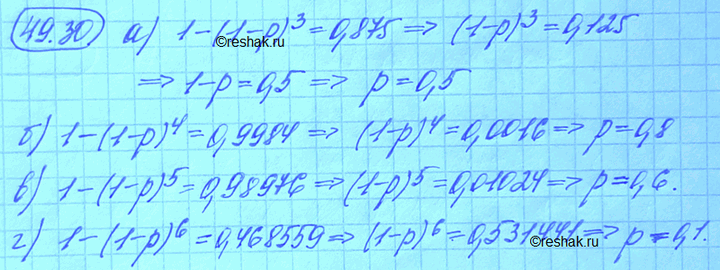 49.30 а) 1-(1-p)^3=0,875 ⟹ (1-p)^3=0,125
⟹ 1-p=0,5 ⟹ p=0,5
©reshak.ru
б) 1-(1-p)^4=0,9984 ⟹ (1-p)^4=0,0016 ⟹ p=0,8
в) 1-(1-p)^5=0,98976 ⟹ (1-p)^5=0,01024 ⟹ p=0,6.
г) 1-(1-p)^6=0,468559 ⟹ (1-p)^6=0,531441 ⟹ p=0,1.
©reshak.ru